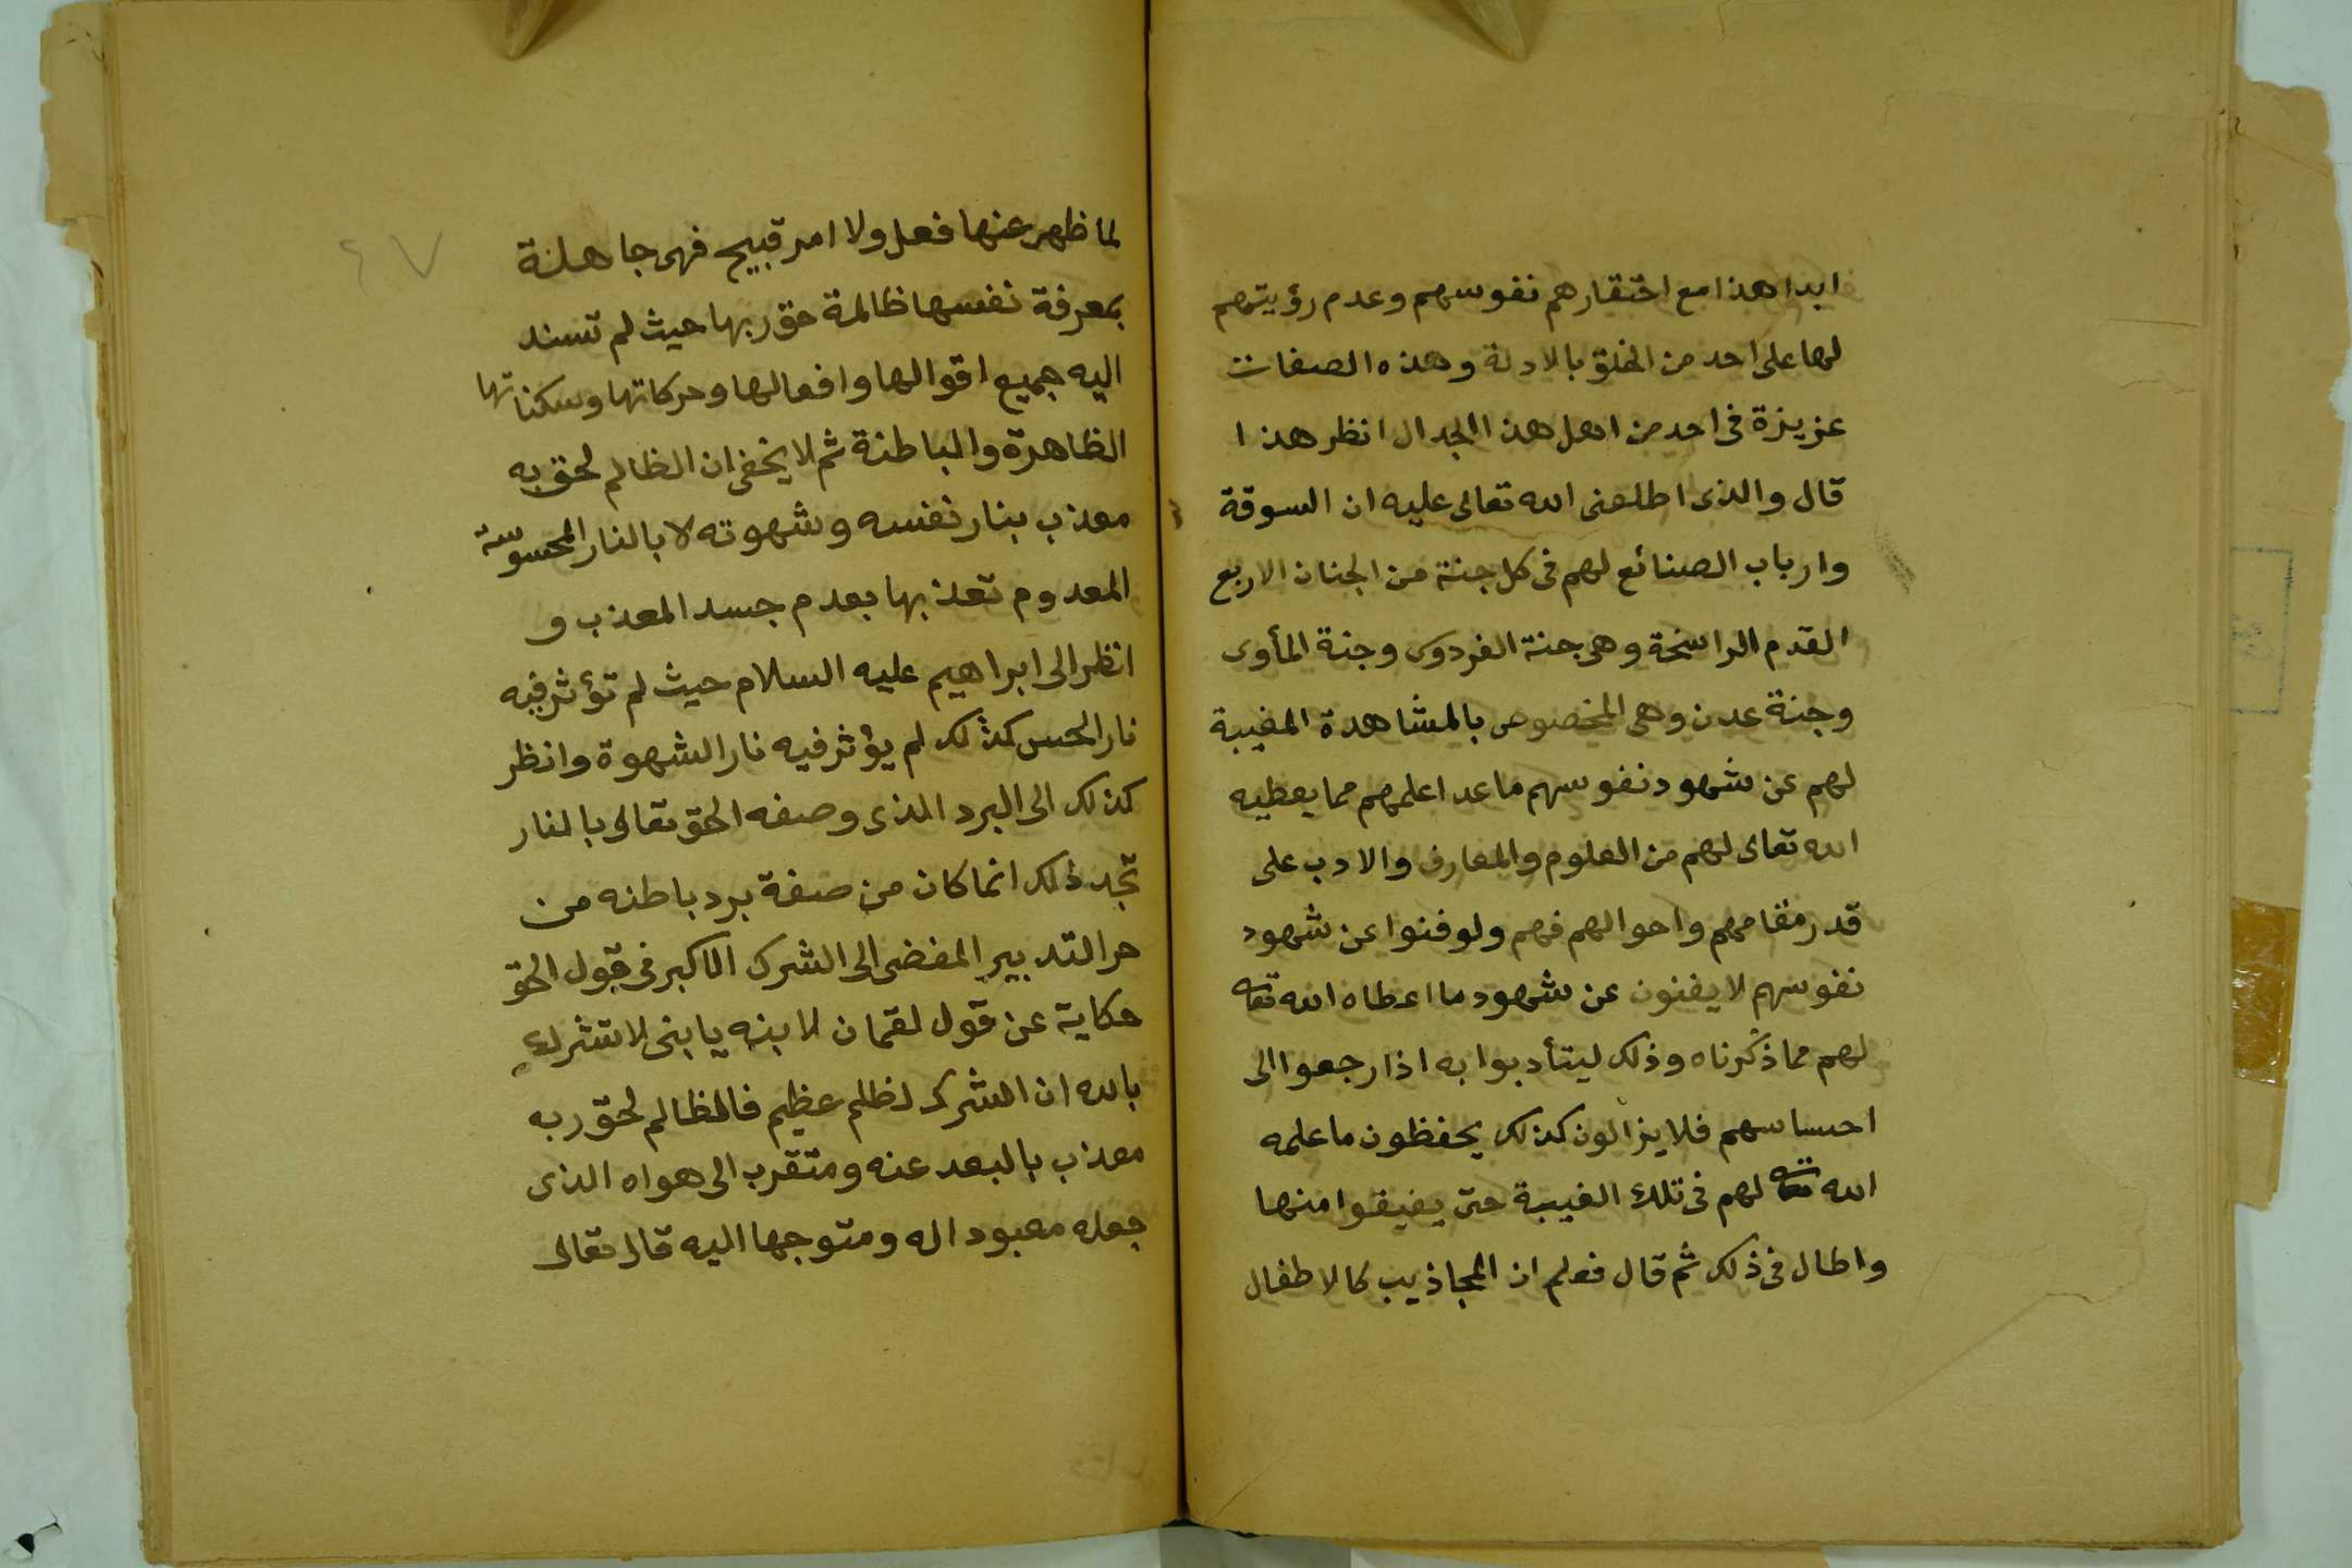 ابدا هذا مع احتقارهم نفوسهم وعدم رؤيتهم
لها على احد من الخلق بالادلة وهذه الصفات
عزيزة فى احد من اهل هذا الجدال انظر هذا
قال والذى اطلعنى الله تعالى عليه ان السوقة
وارباب الصنائع لهم فى كل جنة من الجنان الاربع
القدم الراسخة وهى جنة الفردوس وجنة المأوى
وجنة عدن وهى المخصوص بالمشاهدة المغيبة
لهم عن شهود نفوسهم ما عدا علمهم مما يعطيه
الله تعالى لهم من العلوم والمعارف والادب على
قدر مقامهم واحوالهم فهم ولو فنوا عن شهود
نفوسهم لا يفنون عن شهود ما اعطاه الله تعه
لهم مما ذكرناه وذلك ليتأدبوا به اذا رجعوا الى
احساسهم فلا يزالون كذلك يحفظون ما علمه
الله تعه لهم فى تلك الغيبة حتى يفيقوا منها
واطال فى ذلك ثم قال فعلم ان المجاذيب كالاطفال
٤٧
لما ظهر عنها فعل ولا امر قبيح فهى جاهلة
بمعرفة نفسها ظالمة حق ربها حيث لم تسند
اليه جميع اقوالها وافعالها وحركاتها وسكناتها
الظاهرة والباطنة ثم لا يخفى ان الظالم لحق به
معذب بنار نفسه وشهوته لا بالنار المحسوسة
المعدوم تعذبها بعدم جسد المعذب و
انظر الى ابراهيم عليه السلام حيث لم تؤثر فيه
نار الحس كذلك لم يؤثر فيه نار الشهوة وانظر
كذلك الى البرد الذى وصفه الحق تعالى بالنار
تجد ذلك انما كان من صفة برد باطنه من
حر التدبير المفضى الى الشرك الاكبر فى قول الحق
حكاية عن قول لقمان لابنه يا بنى لا تشرك
بالله ان الشرك لظلم عظيم فالظالم لحق ربه
معذب بالبعد عنه ومتقرب الى هواه الذى
جعله معبودا له ومتوجها اليه قال تعالى